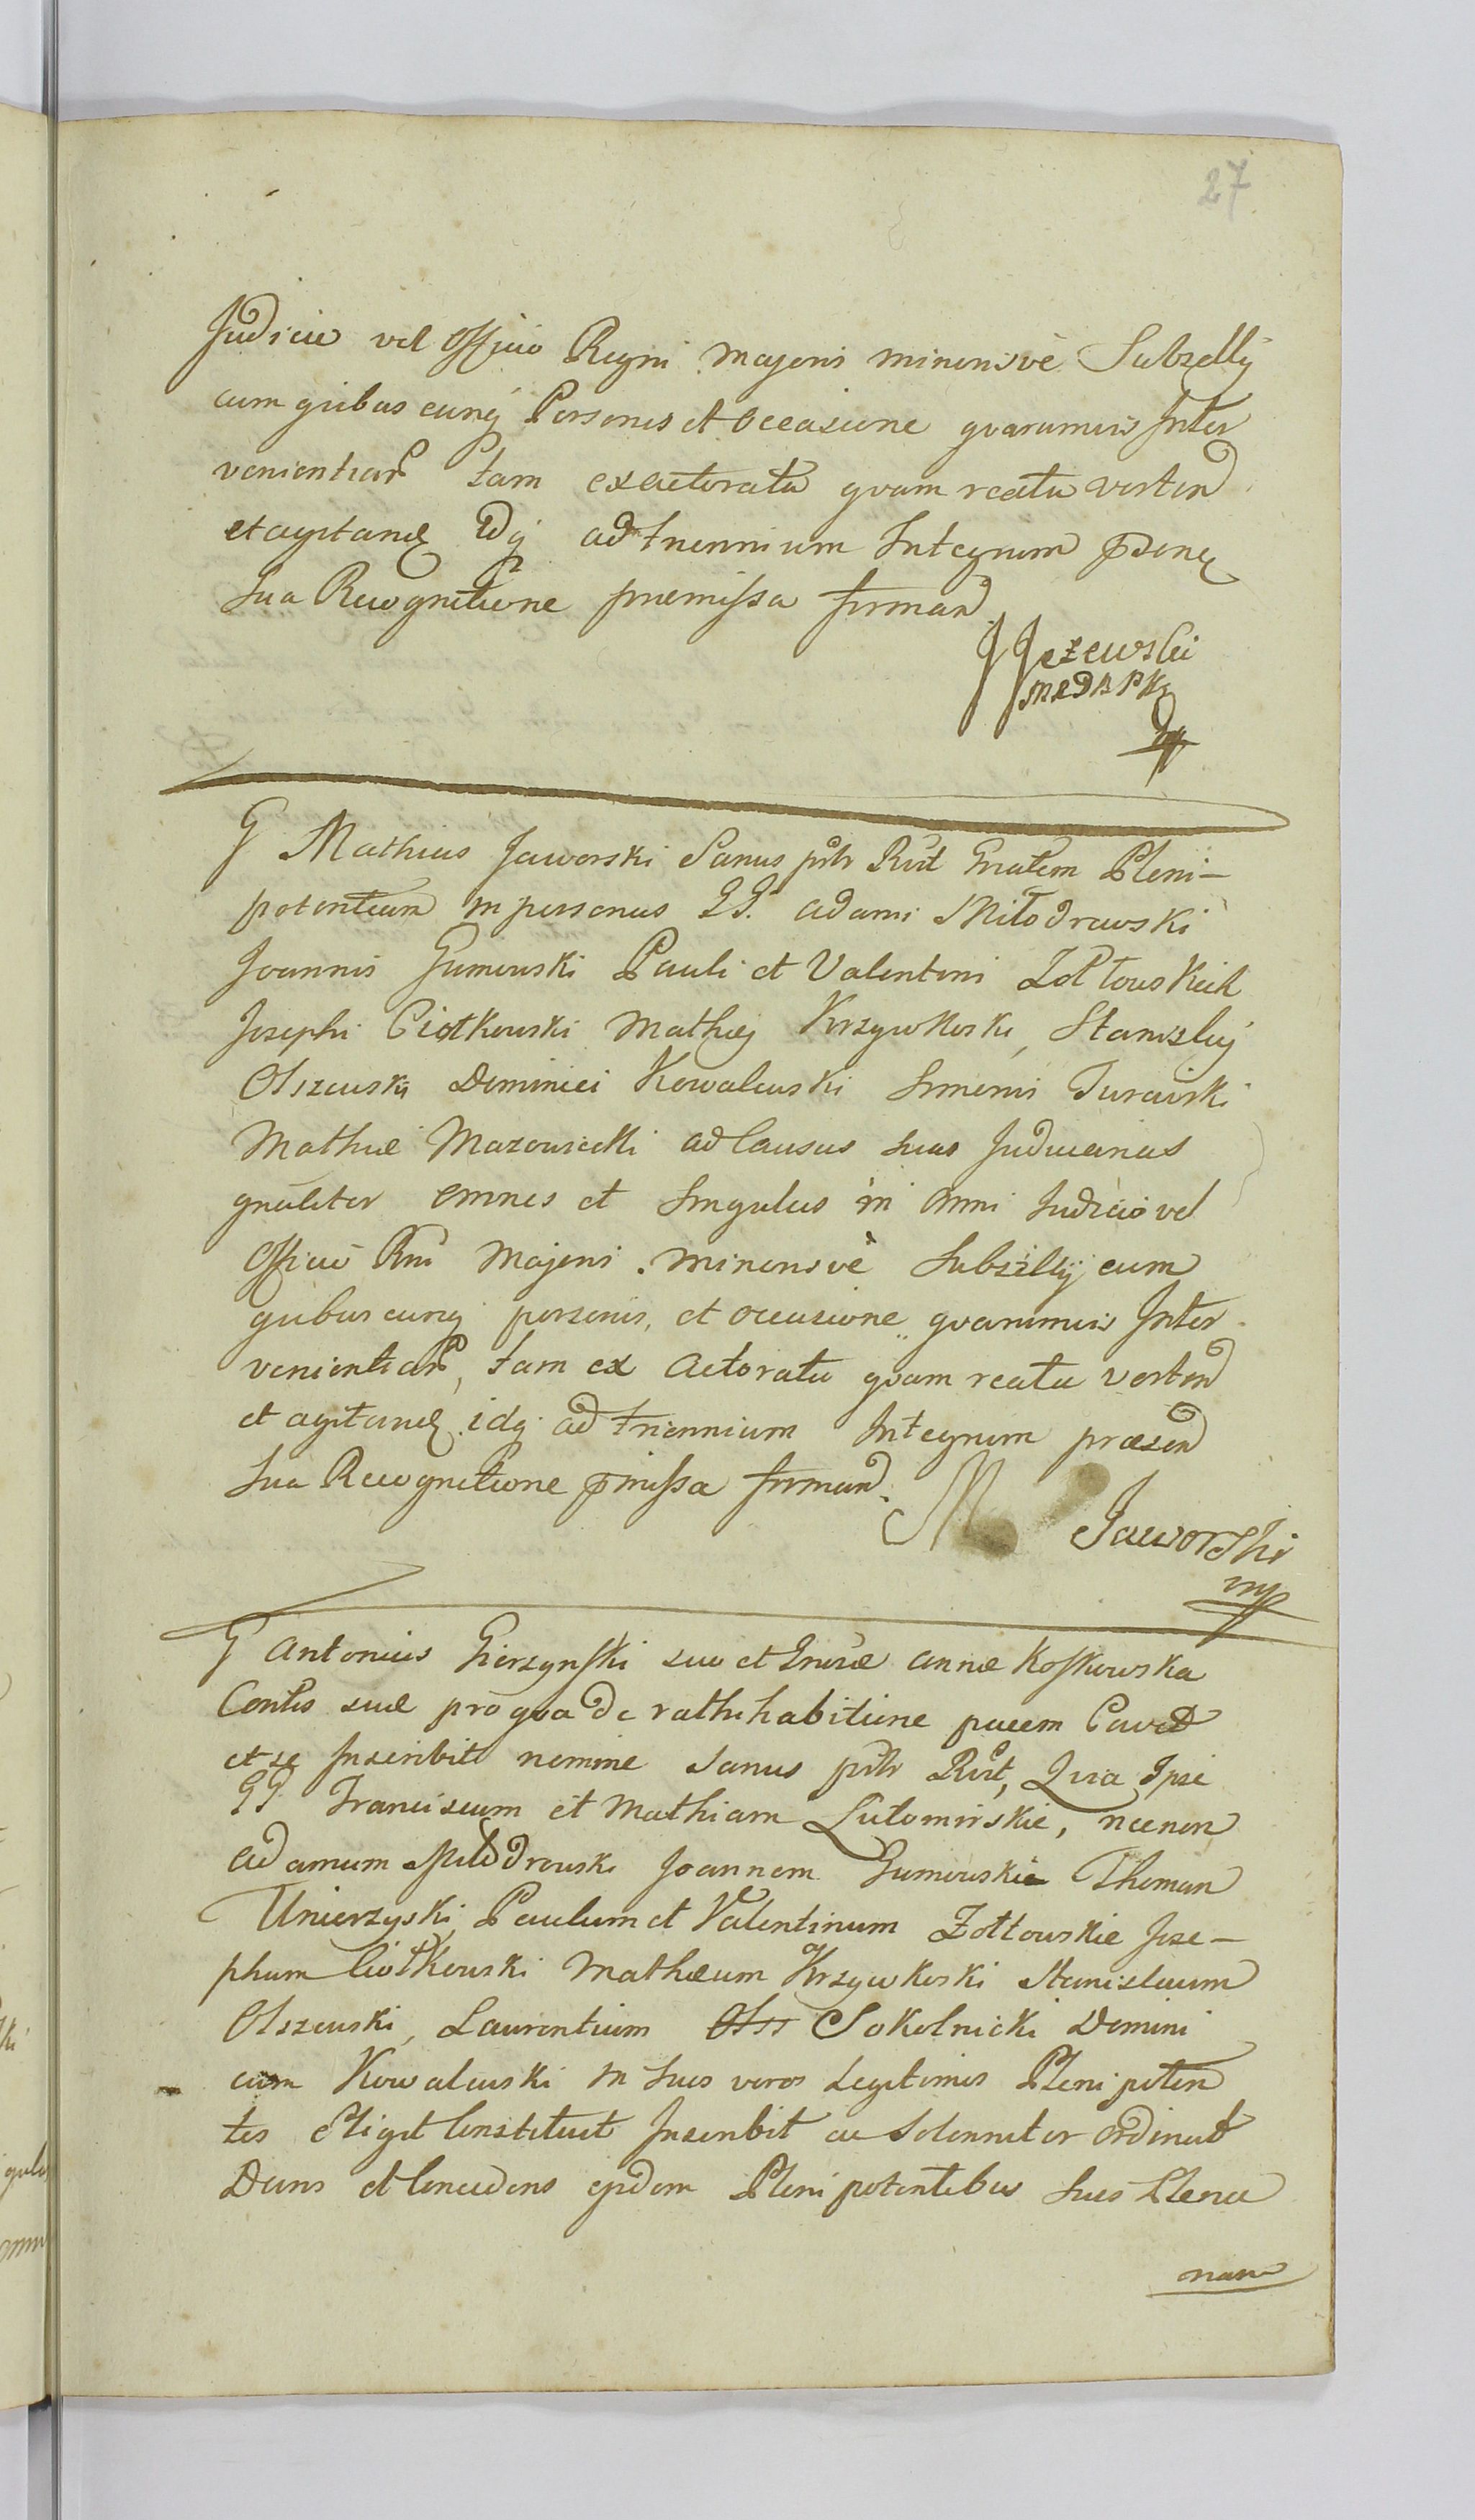 27
Judicio vel Officio Regni Majoris minorisve Subzellÿ
cum qvibus cunq Personis et occasione qvarumvis Inter
venientiar tam exactoratu qvam reatu vertend
et agitand Idq ad triennium Integrum pseneq
Sua Recognitione premissa firmand
J Jeżewski
MRDBPK
G Mathias Jaworski Sanus pstr Rvit Gnalem Pleni-
potentiam in personas GG. Adami Miłodrowski
Joannis Gumowski Pauli et Valentini Żołtowskich
Josephi Ciołkowski Mathej Krzywkoski, Stanislaj
Olszewski Dominici Kowalewski Simonis Turowski
Mathiæ Mazowiecki ad Causas suas Judiciarias
gnaliter omnes et singulas in omni Judicio vel
Officio Rni Majori. minorisve Subzellÿ cum
qvibus cunq personis, et occasione qvarumvis Inter
venientiar, tam ex Actoratu qvam reatu vertend
et agitand idq ad triennium Integrum præsen
Sua Recognitione pmissa firmand.
M Jaworski
mp
G Antonius Gierzynski suo et Gnosæ Annæ Koskowska
Contis suæ pro qva de rathihabitione pacem Cavet
et se Inscribit nomine Sanus pstr Rvit, Qvia Ipse
GG Franciscum et Mathiam Lutomirskie, necnon
Adamum Miłodrowski Joannem Gumowskie Thoman
Unierzyski, Paulum et Valentinum Żołtowskie Jose-
phum Ciołkowski Mathæum Krzywkoski Stanislaum
Olszewski, Laurentium Olss Sokolnicki Domini
cum Kowalewski in suos veros Legitimos Plenipoten
tes Eligit Constituit Inscribit ac Solenniter Ordinat
Dans et Concedens ejsdem Plenipotentibus suis Plena
nam